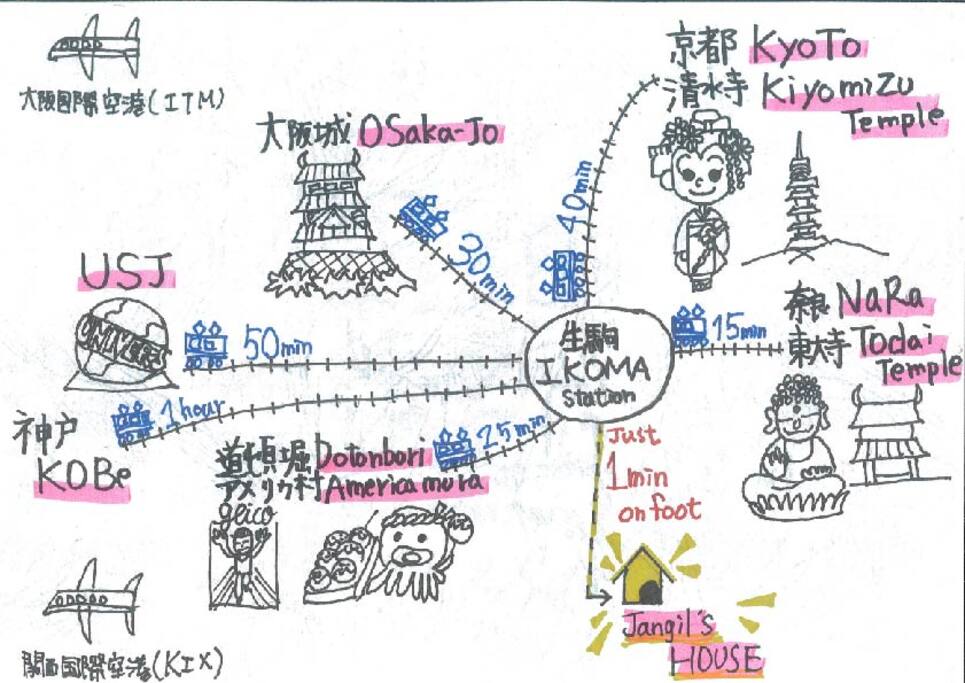 大阪国際空港(ITM)
京都 KyoTo
清水寺 Kiyomizu
Temple
大阪城 OSaka-Jo
40min
30min
USJ
UNIVERS
50min
生駒
IKOMA
Station
15min
奈良 NaRa
東大寺 Todai
Temple
神戸
KOBe
1 hour
25min
道頓堀 Dotonbori
アメリカ村 America mura
geico
Just
1min
on foot
Jangil's
HOUSE
関西国際空港(KIX)